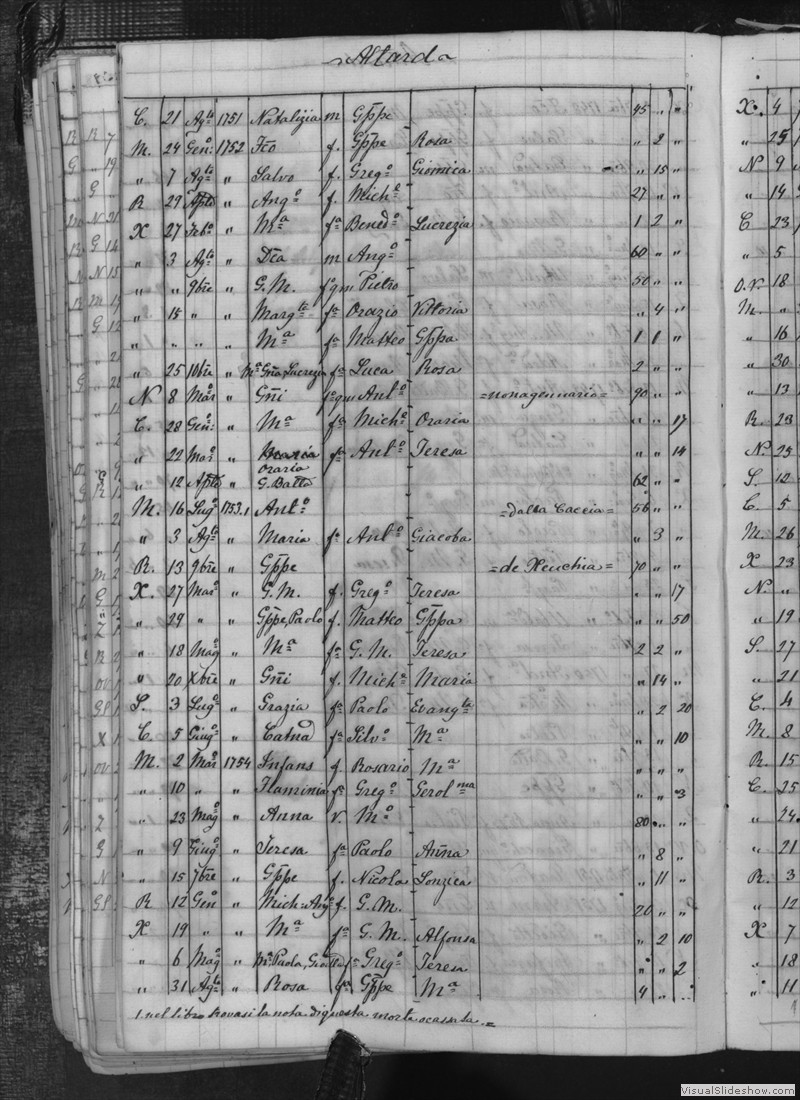 Attardo
C. 21 Agto 1751 Natalizia m Gppe 45 " "
M. 24 Geno: 1752 Fco f. Gppe Rosa " 2 "
" 7 Agto " Salvo f. Grego Giomica " 15 "
R 29 " Ango f. Miche 27 " "
X 27 Febo " Ma fa Benedo Lucrezia 1 2 "
" 3 Agto " Dca m Ango 60 " "
" " 9bre " G. M. f qm Pietro 50 " "
" 15 " " Margta fa Orazio Vittoria " 4 "
" " " " Ma fa Matteo Gppa 1 1 "
" 25 10bre " Ma Gna Lucrezia fa Luca Rosa 2 " "
N 8 Maro " Gni f qm Anto =nonagennario= 90 " "
C. 28 Geno: " Ma fa Miche Oraria " " 17
" 22 Maro " Oraria fa Anto Teresa " " 14
" 12 " G. Batta 62 " "
M. 16 Lugo 1753.1 Anto =dalla Caccia= 56 " "
" 3 Agto " Maria fa Anto Giacoba " 3 "
R. 13 9bre " Gppe =de Xeuchia= 70 " "
X. 27 Maro " G. M. f. Grego Teresa " " 17
" 29 " " Gppe, Paolo f. Matteo Gppa " " 50
" 18 Mago " Ma fa G. M. Teresa 2 2 "
" 20 Xbre " Gni f. Miche Maria " 14 "
S. 3 Lugo " Grazia fa Paolo Evangta " 2 20
C. 5 Giugo " Catna fa Silvo Ma " " 10
M. 2 Maro 1754 Infans f. Rosario Ma " " "
" 10 " " Flaminia fa Grego Gerolma " " 3
" 23 Mago " Anna v. Mo 80 " "
" 9 Giugo " Teresa fa Paolo Anna " 8 "
" 15 7bre " Gppe f. Nicola Lonzica " 11 "
R 12 Geno " Mich: Ango f. G. M. 20 " "
X 19 " " Ma fa G. M. Alfonsa " 2 10
" 6 Mago " Ma Paola, fa Grego Teresa " " 2
" 31 Agto " Rosa fa Gppe Ma 4 " "
1. nel libro trovasi la nota di questa morte
X. 4
" 25
N 9
" 14
C 23
" 5
O.V. 18
M. "
" 16
" 30
" 13
R. 23
N. 25
S. 12
C. 5
M. 26
X 23
N. "
" 19
S. 27
" 21
C. 4
M. 8
R. 15
C. 25
" 24
" 21
R. 3
" 12
X 7
" 18
" 11
VisualSlideshow.com